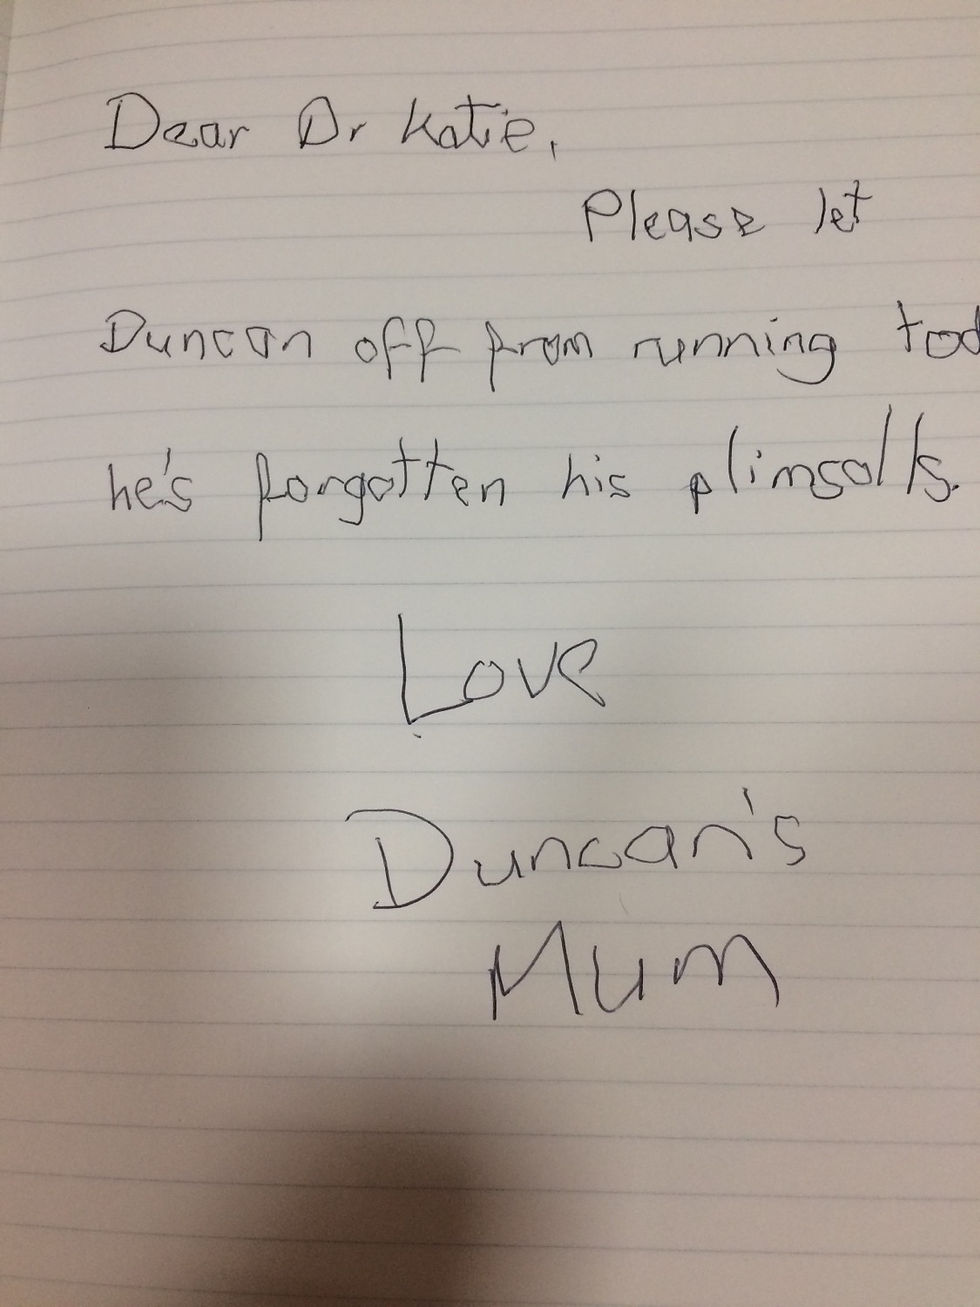 Dear Dr Katie,
Please let
Duncan off from running tod
he's forgotten his plimsolls.
Love
Duncan's
Mum